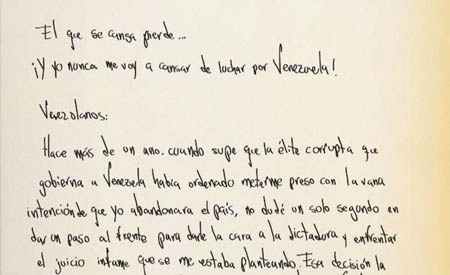 El que se cansa pierde...
¡Y yo nunca me voy a cansar de luchar por Venezuela!
Venezolanos:
Hace más de un año, cuando supe que la élite corrupta que
gobierna a Venezuela había ordenado meterme preso con la vana
intención de que yo abandonara el país, no dudé un solo segundo en
dar un paso al frente para darle la cara a la dictadura y enfrentar
el juicio infame que se me estaba planteando. Esa decisión la